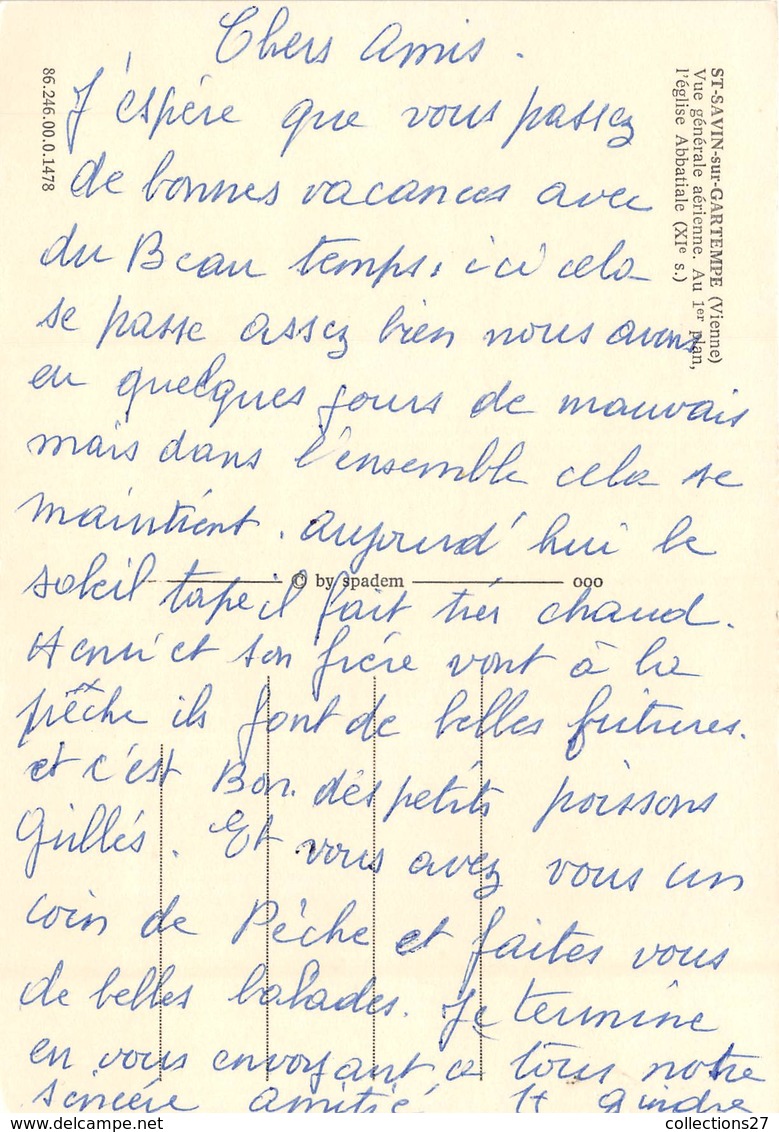 Chers Amis.
J'éspére que vous passez
de bonnes vacances avec
du Beau temps, ici cela
se passe assez bien nous avons
eu quelques jours de mauvais
mais dans l'ensemble cela se
maintient. aujourd'hui le
soleil tape il fait trés chaud.
Henri et son frére vont à la
pêche ils font de belles fritures.
et c'est Bon. dés petits poissons
Grillés. Et vous avez vous un
coin de Pêche et faites vous
de belles balades. Je termine
en vous envoyant a tous notre
sincére amitié
ST-SAVIN-sur-GARTEMPE (Vienne)
Vue générale aérienne. Au 1er plan,
l'église Abbatiale (XIe s.)
86.246.00.0.1478
© by spadem ooo
collections27